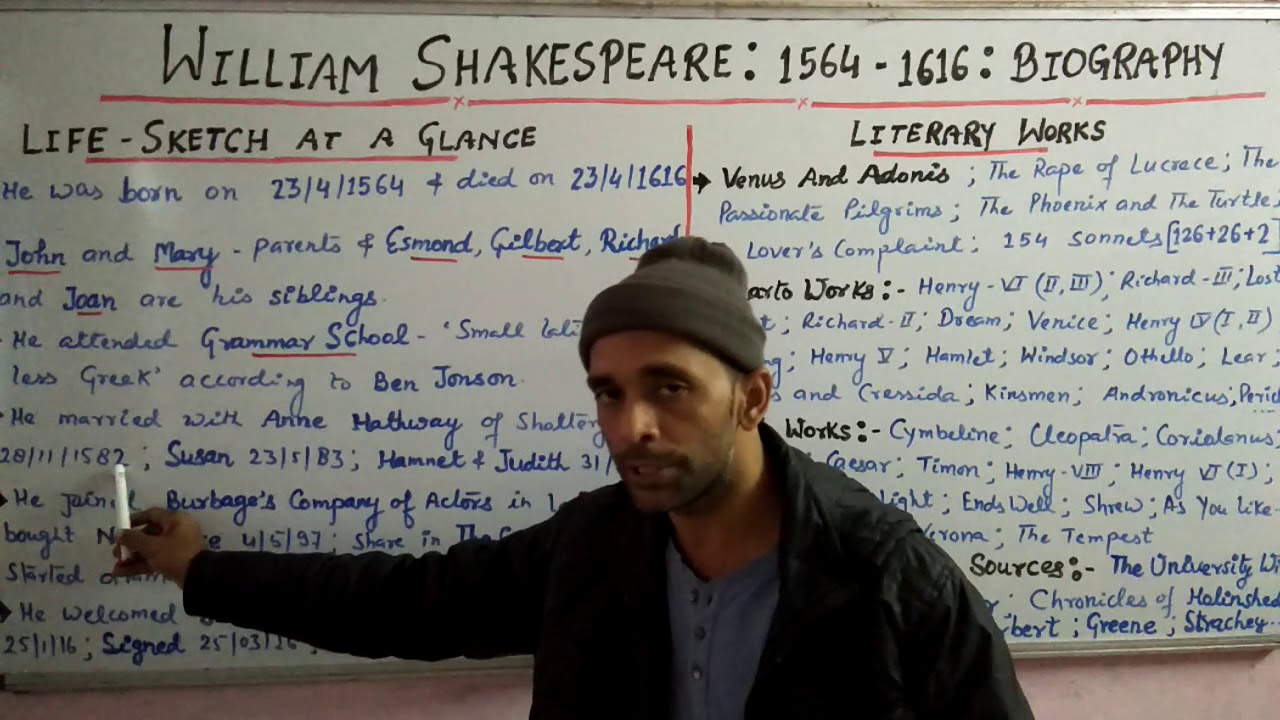 WILLIAM SHAKESPEARE: 1564 - 1616: BIOGRAPHY
LIFE - SKETCH AT A GLANCE
He was born on 23/4/1564 & died on 23/4/1616
John and Mary - parents & Esmond, Gilbert, Richard
and Joan are his siblings.
He attended Grammar School - 'Small
less Greek' according to Ben Jonson.
He married with Anne Hathway of
28/11/1582 ; Susan 23/5/83; Hamnet & Judith 31/
He Burbage's Company of Actors in
bought 4/5/97; Share in The
Started
He welcomed
25/1/16 ; Signed 25/03/16 ;
LITERARY WORKS
→ Venus And Adonis ; The Rape of Lucrece ; The
Passionate Pilgrims ; The Phoenix and The Turtle;
Lover's Complaint ; 154 Sonnets [126+26+2]
Works :- Henry - VI (II, III) ; Richard - III ; Lost
; Richard - II ; Dream ; Venice ; Henry IV (I, II)
; Henry V ; Hamlet ; Windsor ; Othello ; Lear ;
and Cressida ; Kinsmen ; Andronicus,
Works :- Cymbeline ; Cleopatra ; Coriolanus
Caesar ; Timon ; Henry - VIII ; Henry VI (I) ;
; Ends Well ; Shrew ; As You Like
; The Tempest
Sources :- The University
Chronicles of Holinshed
; Greene ; Strachey